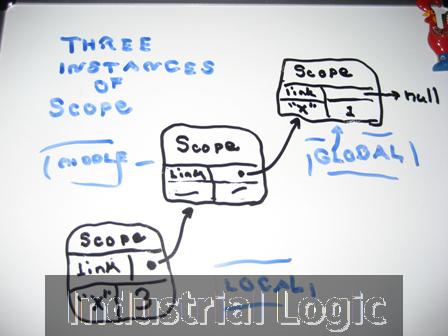 THREE
INSTANCES
OF
Scope
Scope
link
null
"x"
1
GLOBAL
Scope
link
MIDDLE
Scope
link
"x"
3
LOCAL
Industrial Logic